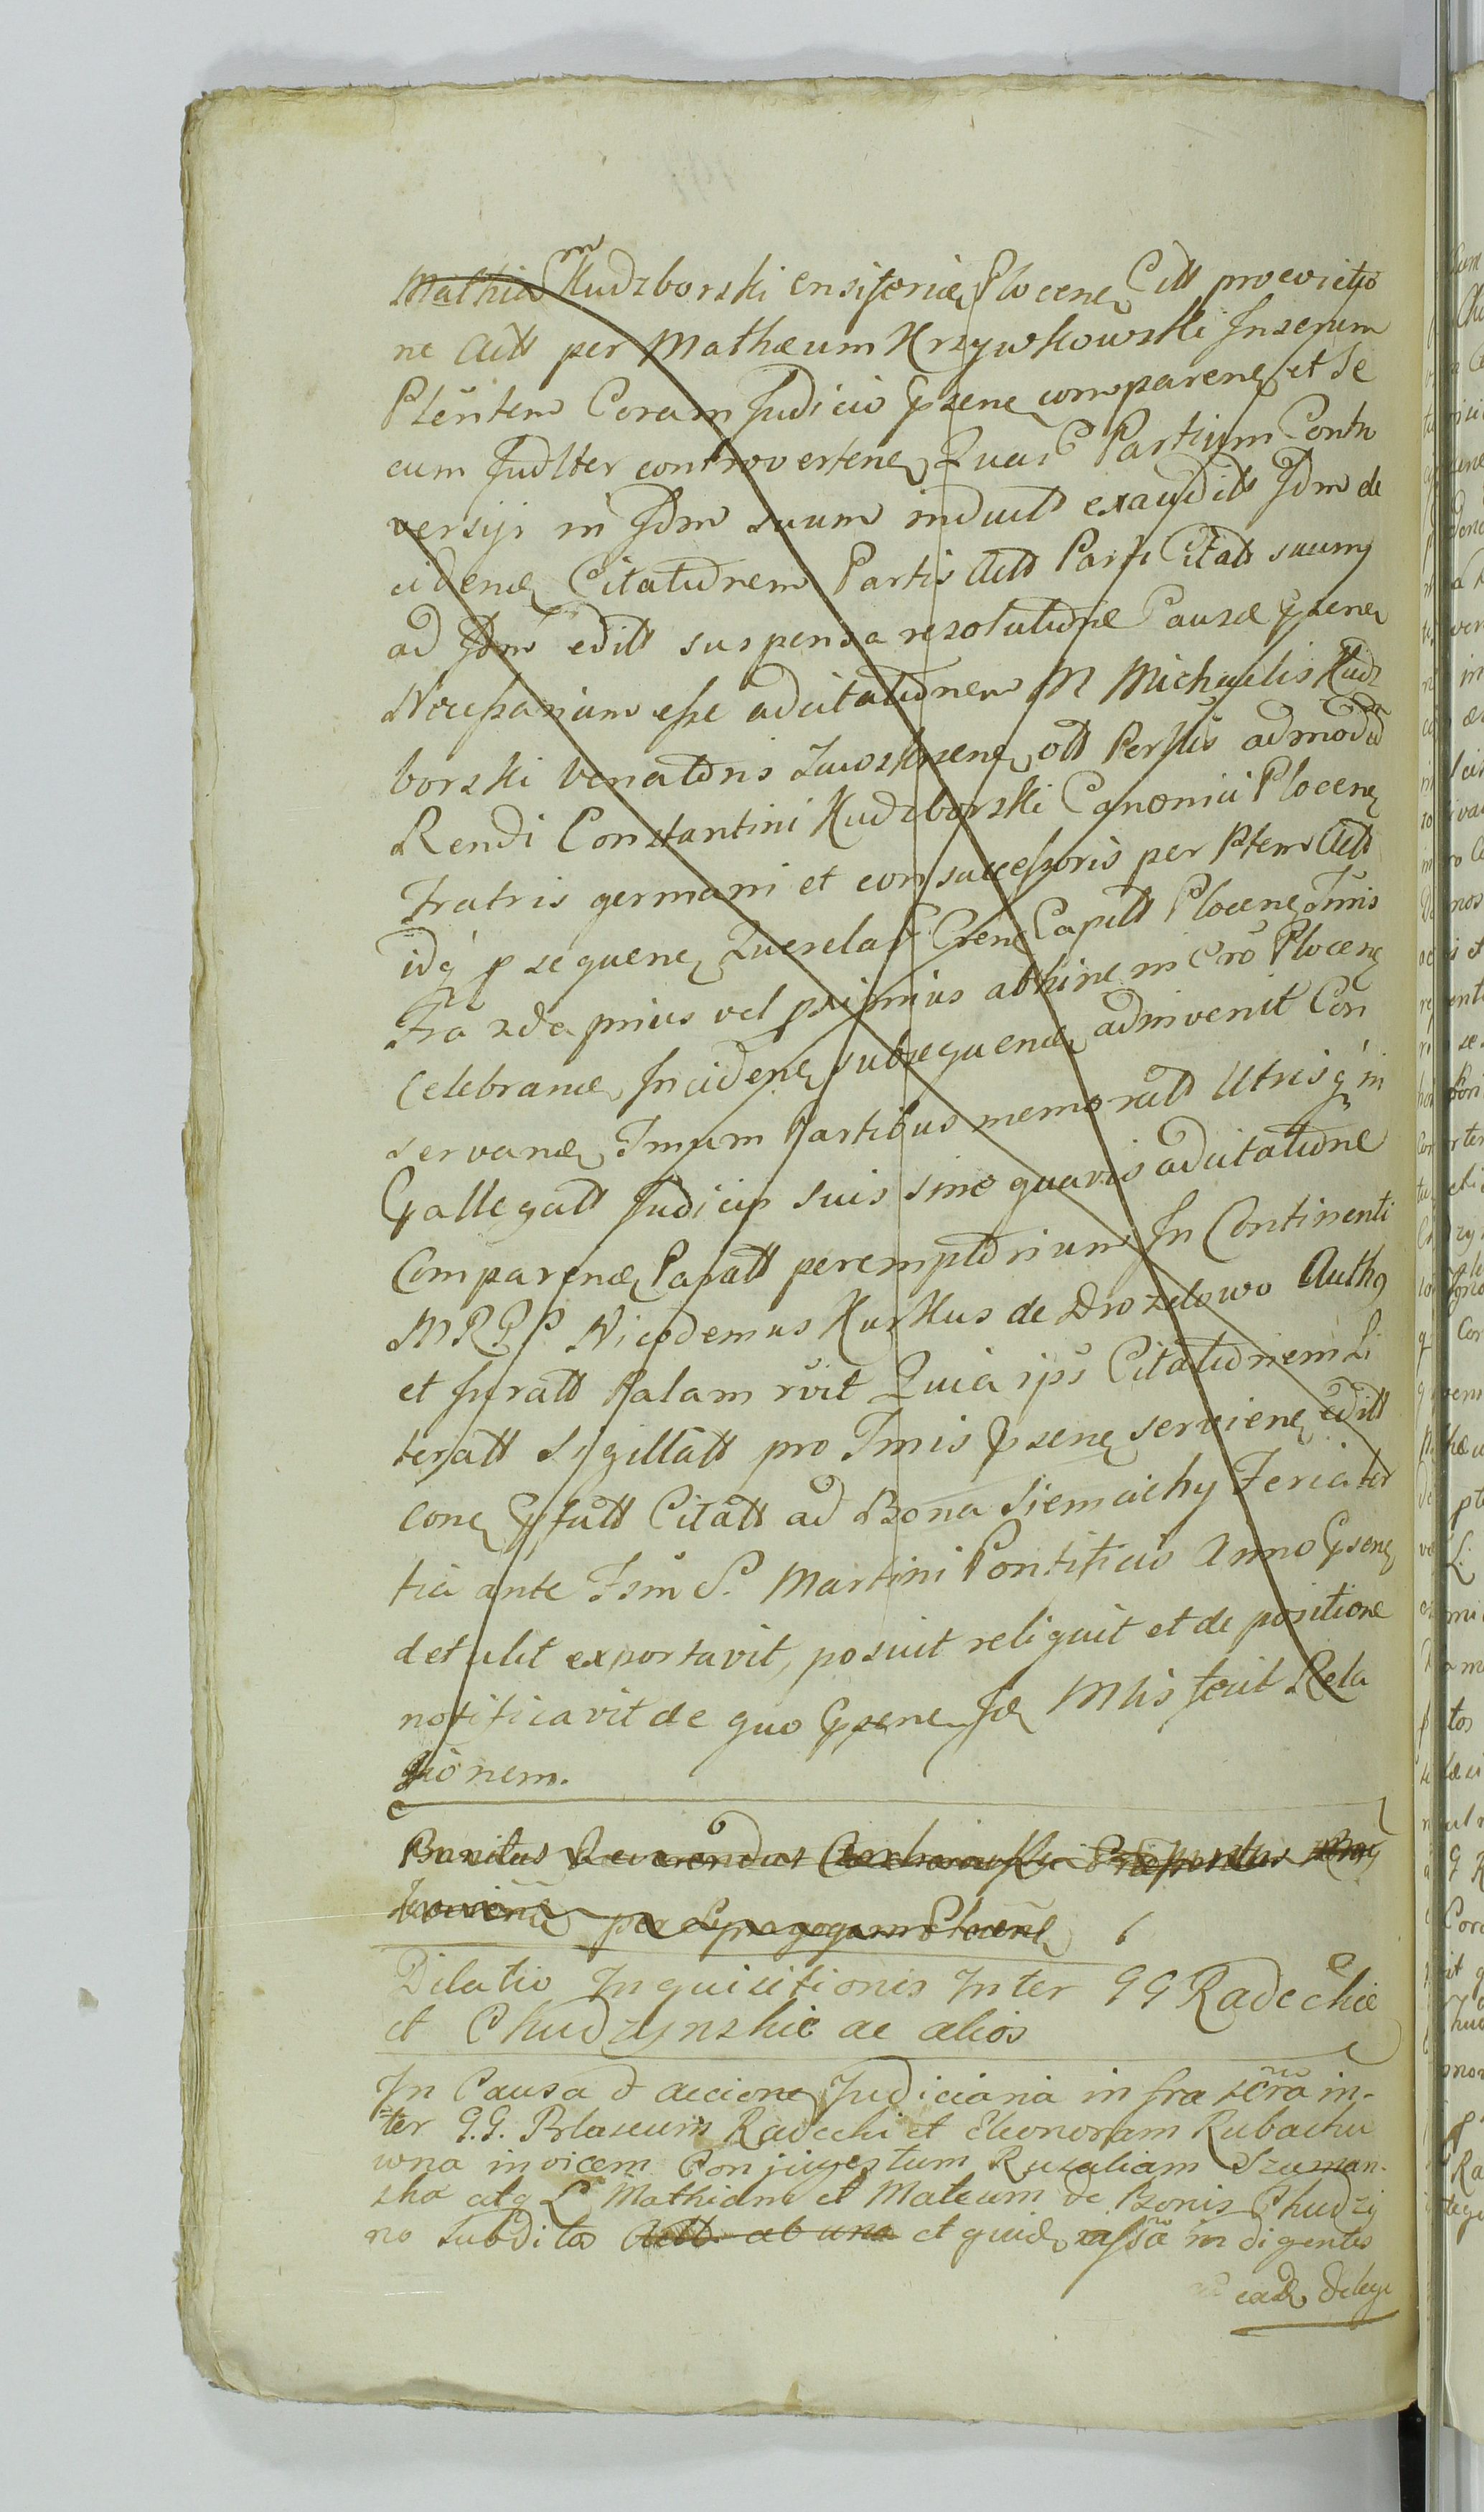 Mathia Kudzborski ensiferiæ Plocenę Citt proevictio
ne Actt per Mathæum Krzywkowski Inserum
Pleñtem Coram Judicio Psenę comparenę et Se
cum Judlter controvertenę Quar Partium Contro
versys in Jdm suum induct exaudits Jdm de
cidenæ Citationem Partis Actt Parti Citatt suumq
ad Jdm editt suspensa resolutione Causæ Psenę
Necessariam esse adcitationem M Michaelis Kudz
borski Venatoris Zawskrsenę ott Perllis admodu
Rendi Constantini Kudzborski Canonici Plocenę
Fratris germani et con successoris per Ptem Actt
idq psequenę Querelas Grenę Capitt Plocenę Tmis
Fra 2da prius vel pximius abhinc in Cro Plocenę
Celebranæ Incidenę subsequenæ adinvenit Con
servanæ Tmum Partibus memoratt Utrisq in
Pallegatt Judicys suis sine quavis adcitatione
Comparenæ Paratt peremptorium In Continenti
M R P P Nicodemus Kurkus de Drozdowo Authę
et Juratt Palam rvit Quia ips Citationem Li
teratt Sygillatt pro Tmis Psenę servienę editt
conę Pfatt Citatt ad Bona Siemiechy Feria ter
tia ante Fsm S. Martini Pontificis Anno Psenę
detulit exportavit, posuit reliquit et de positione
notificavit de quo Psenę Jdę Mlis fecit Rela
tionem.
Banitus Reverendus Præpositus
per Synagogam Plocenę
Dilatio Inquisitionis Inter GG Radeckie
et Chudzynskie ac alios
In Causa & accione Judiciaria infra scra in-
ter G.G. Blaseum Radecki et Eleonoram Rubachu
wna invicem Conjuges tum Rusaliam Szuman-
ska atq L Mathiam et Mateum de Bonis Chudzy
no Subditos Actt ab una et quidę in digentes
eadę delege